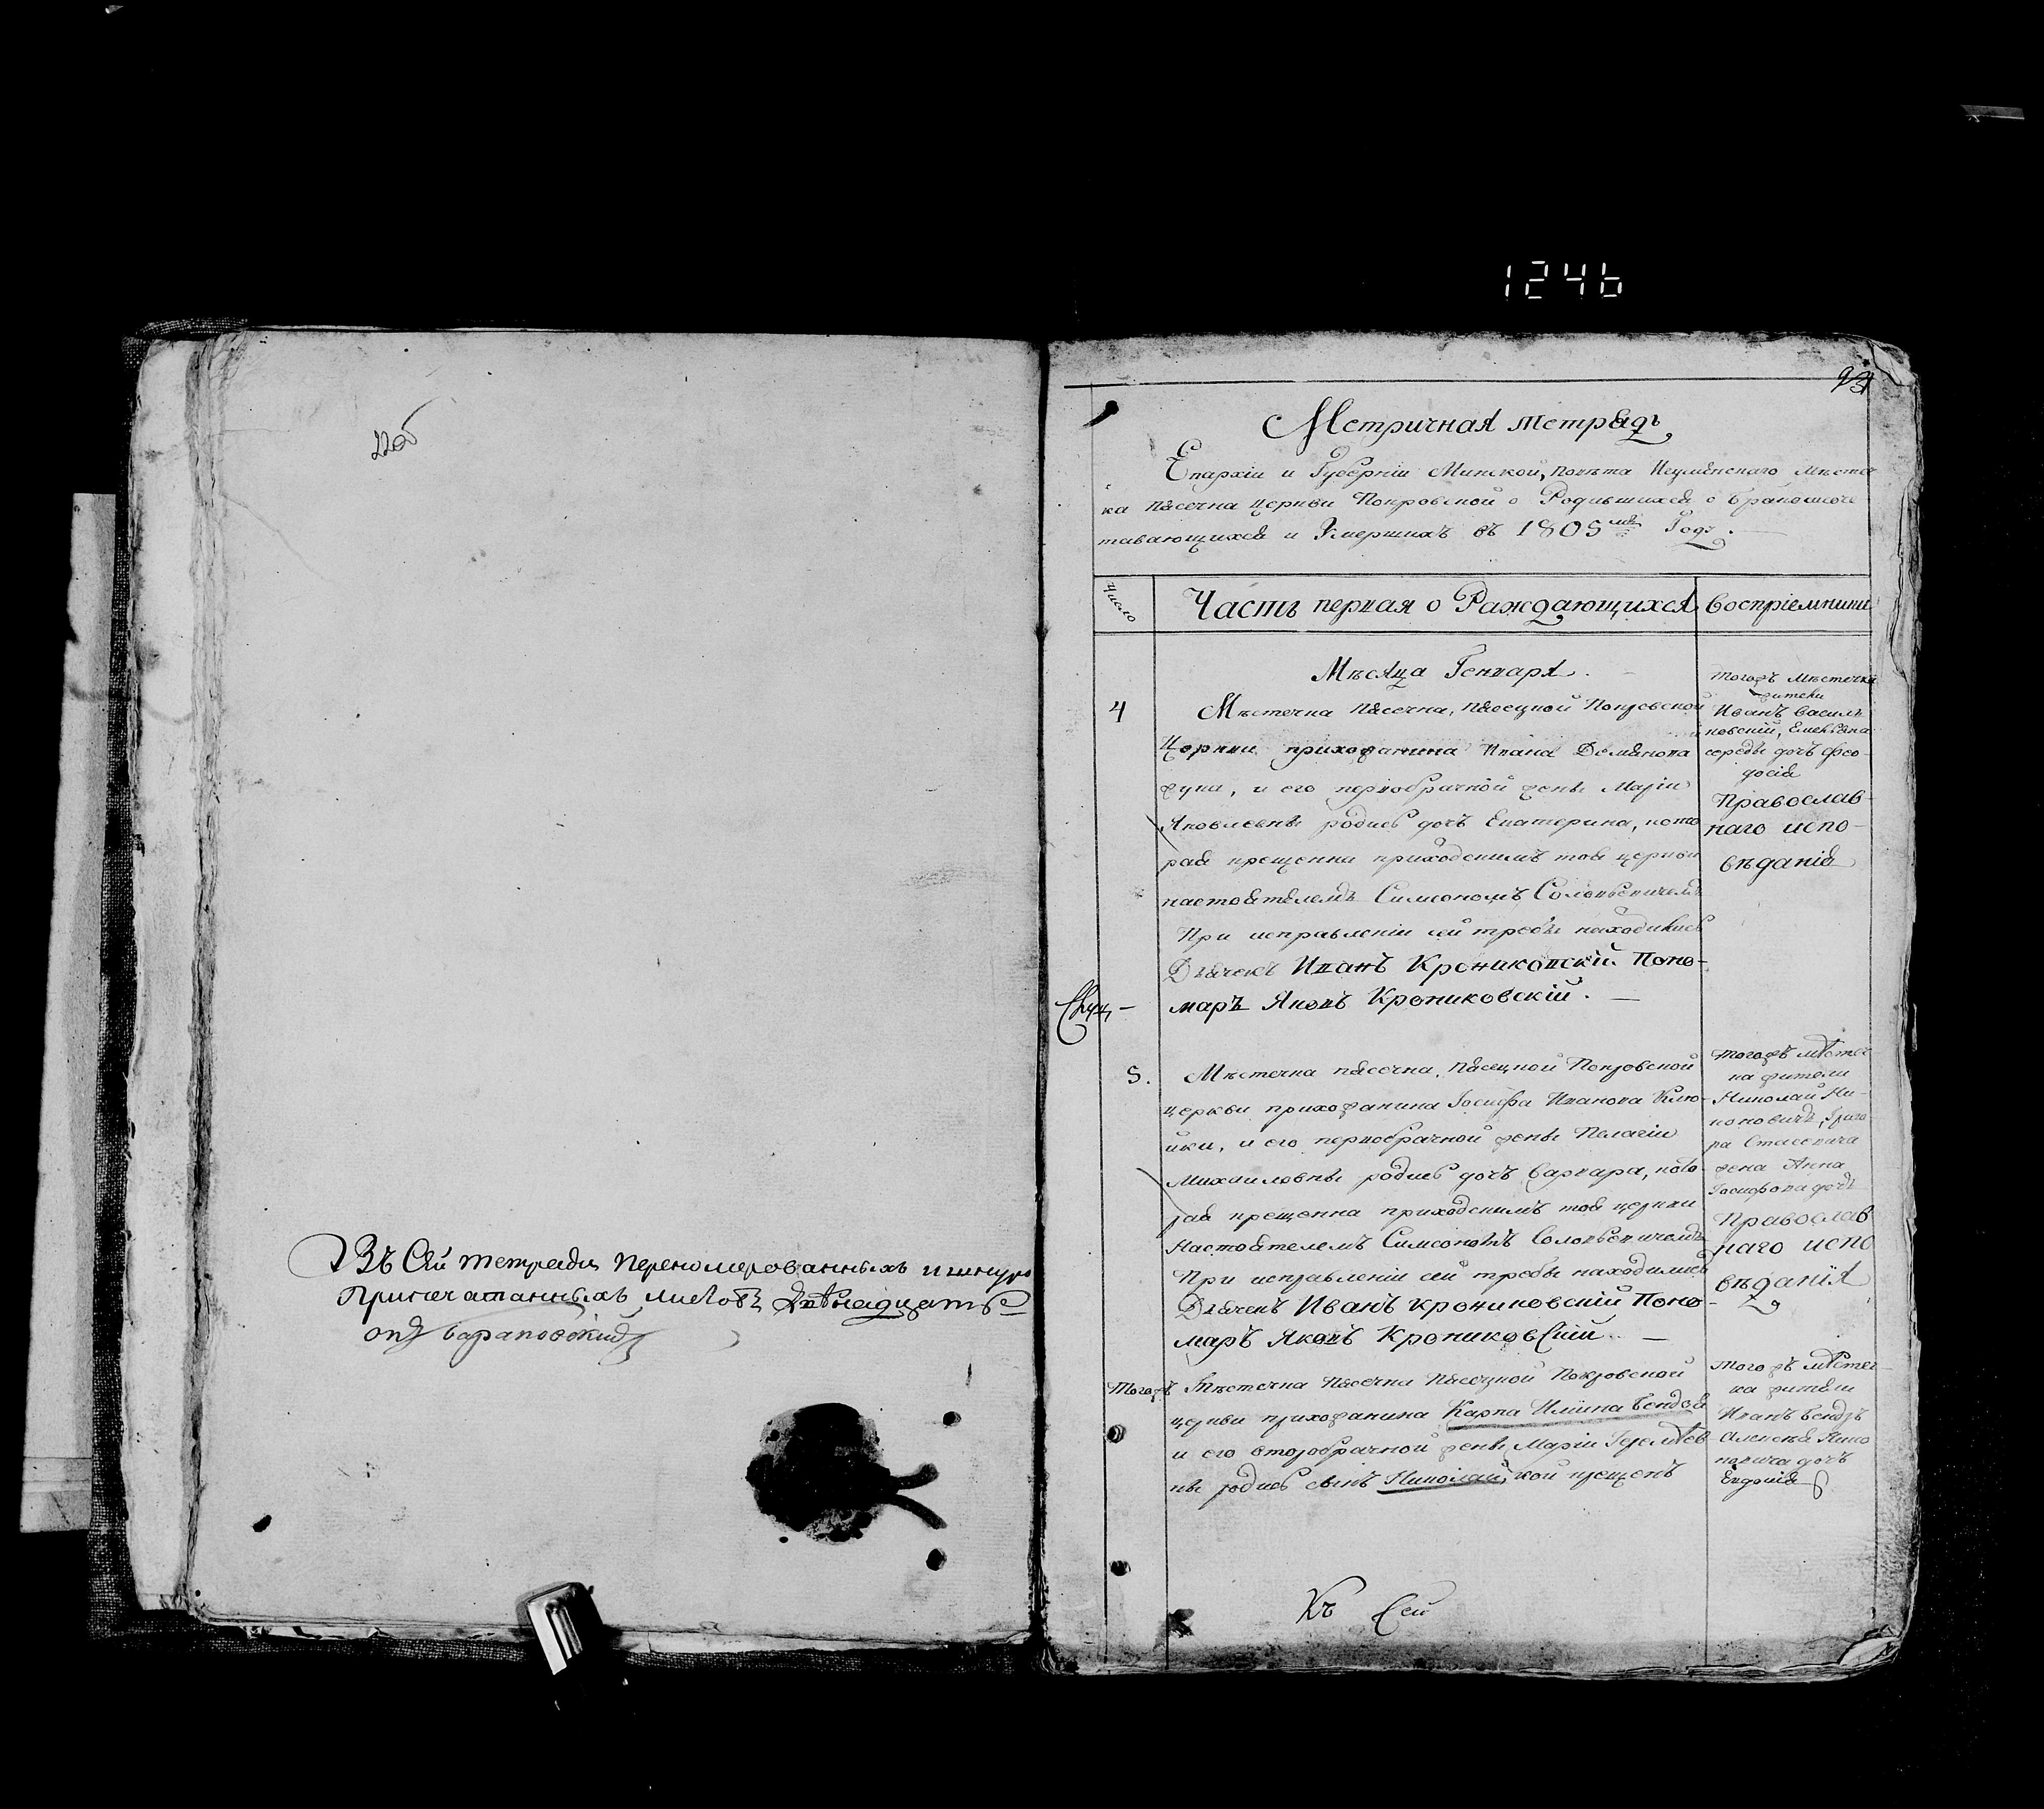 1246
22об
Въ Сей тетради переномерованныхъ и шнуро
Припечатанныхъ листовъ двѣнадцать
Барановский
Метричная тетрадь
Епархіи и Губерніи Минской, повѣта Игуменскаго мѣсте
ка Пясечна церкви Покровской о Родившихся о бракосоче
тавающихся и Умершихъ въ 1805мъ Годѣ.
Число
Часть первая о Раждающихся
Воспріемники
Мѣсяца Генваря.
4
Мѣстечка Пясечна, Пясецкой Покровской
Церкви прихожанина Ивана Демянова
и его первобрачной жены Маріи
Яковлевны родись дочъ Екатерина, кото
рая крещенна приходскимъ той церкви
настоятелемъ Симеономъ Соловьевичемъ
При исправленіи сей требы находились
Дьячекъ Иванъ Крониковскій Поно-
маръ Яковъ Крониковскій. —
тогожъ мѣстечка
жители
Иванъ Василь
ковскій, Емельяна
середы дочъ Фео-
досія
Православ-
наго испо-
вѣданія
5.
Мѣстечка Пясечна, Пясецкой Покровской
церкви прихожанина Іосифа Иванова Клю-
йки, и его первобрачной жены Пелагіи
Михайловны родись дочъ Варвара, кото-
рая крещенна приходскимъ той церкви
Настоятелемъ Симеономъ Соловьевичемъ
При исправленіи сей требы находились
Дьячекъ Иванъ Крониковскій Поно-
маръ Яковъ Крониковскій. —
тогожъ мѣстеч
ка жители
Николай Ни-
коновичъ, Григо
ра Стасевича
жена Анна
Іосифова дочъ
Православ
наго испо
вѣданія
Тогожъ
Мѣстечка Пясечна Пясецкой Покровской
церкви прихожанина Карпа Илїина Бендзя
и его второбрачной жены Маріи Іеремѣев
ны родись сынъ Николай, кой крещенъ
тогожъ мѣстеч
ка жители
Иванъ Бендзъ
Алексѣя Нико
новича дочъ
Евдокія
Къ Сей